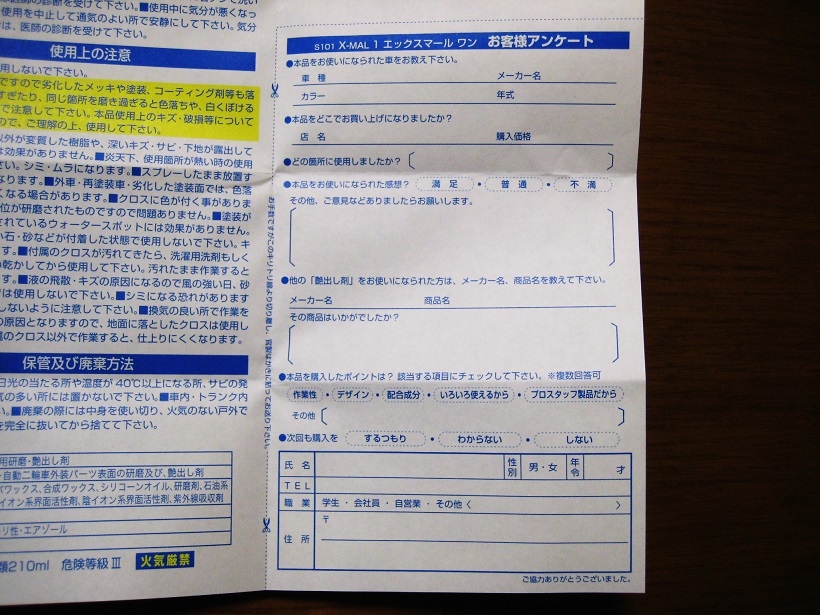 の診断を受けて下さい。■使用中に気分が悪くなっ
使用を中止して通気のよい所で安静にして下さい。気分
は、医師の診断を受けて下さい。
使用上の注意
用しないで下さい。
ですので劣化したメッキや塗装、コーティング剤等も落
すぎたり、同じ箇所を磨き過ぎると色落ちや、白くぼける
で注意して下さい。本品使用上のキズ・破損等について
ので、ご理解の上、使用して下さい。
以外が変質した樹脂や、深いキズ・サビ・下地が露出して
は効果がありません。■炎天下、使用箇所が熱い時の使用
さい。シミ・ムラになります。■スプレーしたまま放置す
なります。■外車・再塗装車・劣化した塗装面では、色落
くなる場合があります。■クロスに色が付く事がありま
位が研磨されたものですので問題ありません。■塗装が
されているウォータースポットには効果がありません。
い石・砂などが付着した状態で使用しないで下さい。キ
す。■付属のクロスが汚れてきたら、洗濯用洗剤もしく
い乾かしてから使用して下さい。汚れたまま作業すると
す。■液の飛散・キズの原因になるので風の強い日、砂
では使用しないで下さい。■シミになる恐れがあります
しないように注意して下さい。■換気の良い所で作業を
の原因となりますので、地面に落としたクロスは使用し
属のクロス以外で作業すると、仕上りにくくなります。
保管及び廃棄方法
日光の当たる所や温度が40℃以上になる所、サビの発
気の多い所には置かないで下さい。■車内・トランク内
い。■廃棄の際には中身を使い切り、火気のない戸外で
を完全に抜いてから捨てて下さい。
用研磨・艶出し剤
・自動二輪車外装パーツ表面の研磨及び、艶出し剤
バワックス、合成ワックス、シリコーンオイル、研磨剤、石油系
イオン系界面活性剤、陰イオン系界面活性剤、紫外線吸収剤
リ性・エアゾール
類210ml 危険等級Ⅲ 火気厳禁
S101 X-MAL 1 エックスマール ワン お客様アンケート
●本品をお使いになられた車をお教え下さい。
車 種 メーカー名
カラー 年式
●本品をどこでお買い上げになりましたか?
店 名 購入価格
●どの箇所に使用しましたか?
●本品をお使いになられた感想? 満 足 ・ 普 通 ・ 不 満
その他、ご意見などありましたらお願いします。
●他の「艶出し剤」をお使いになられた方は、メーカー名、商品名を教えて下さい。
メーカー名 商品名
その商品はいかがでしたか?
●本品を購入したポイントは? 該当する項目にチェックして下さい。※複数回答可
作業性 ・ デザイン ・ 配合成分 ・ いろいろ使えるから ・ プロスタッフ製品だから
その他
●次回も購入を するつもり ・ わからない ・ しない
氏 名 性別 男・女 年令 才
TEL
職 業 学生 ・ 会社員 ・ 自営業 ・ その他〈 〉
住 所 〒
ご協力ありがとうございました。